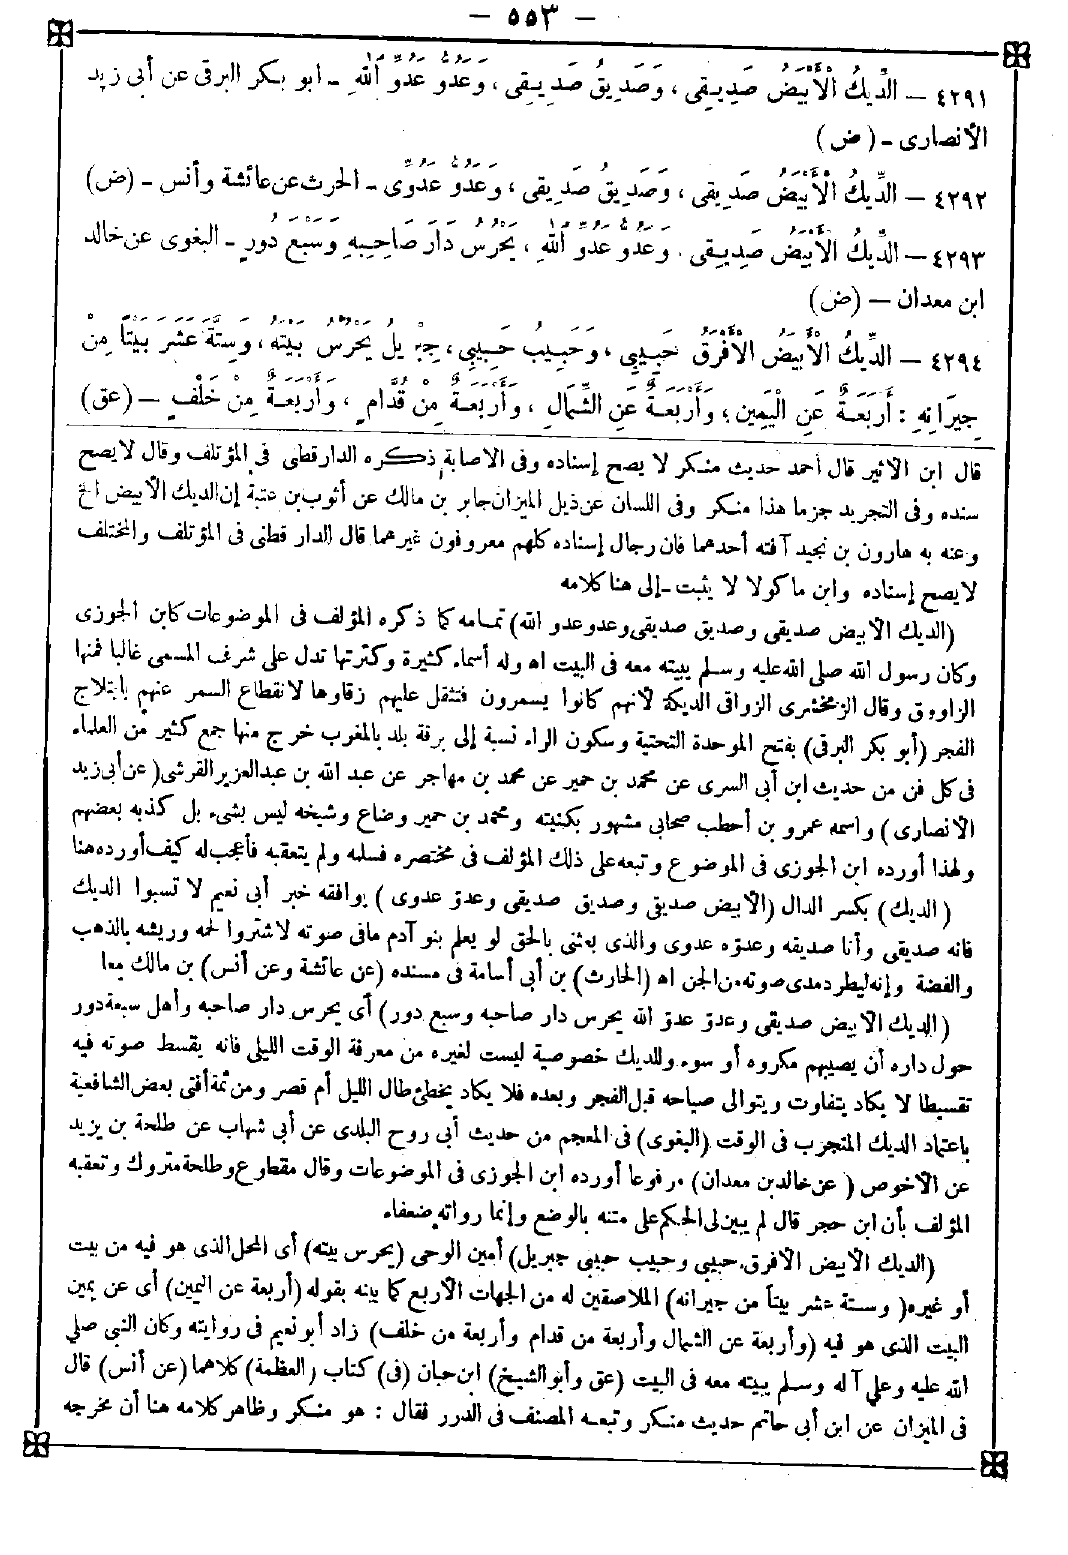 — ٥٥٣ —
٤٢٩١ — الدِّيكُ الْأَبْيَضُ صَدِيقِي ، وَصَدِيقُ صَدِيقِي ، وَعَدُوُّ عَدُوِّ اللهِ - ابو بكر البرقى عن أبى زيد
الأنصارى - (ض)
٤٢٩٢ — الدِّيكُ الْأَبْيَضُ صَدِيقِى ، وَصَدِيقُ صَدِيقِى ، وَعَدُوُّ عَدُوِّى - الحرث عن عائشة وأنس - (ض)
٤٢٩٣ — الدِّيكُ الْأَبْيَضُ صَدِيقِى . وَعَدُوُّ عَدُوِّ اللهِ ، يَحْرُسُ دَارَ صَاحِبِهِ وَسَبْعَ دُورٍ - البغوى عن خالد
ابن معدان — (ض)
٤٢٩٤ — الدِّيكُ الْأَبْيَضُ الْأَفْرَقُ حَبِيبِي ، وَحَبِيبُ حَبِيبِي ، جِبْرِيلُ يَحْرُسُ بَيْتَهُ ، وَسِتَّةَ عَشَرَ بَيْتًا مِنْ
جِيرَانِهِ : أَرْبَعَةٌ عَنِ الْيَمِينِ ، وَأَرْبَعَةٌ عَنِ الشِّمَالِ ، وَأَرْبَعَةٌ مِنْ قُدَّامٍ ، وَأَرْبَعَةٌ مِنْ خَلْفٍ — (عق)
قال ابن الأثير قال أحمد حديث منكر لا يصح إسناده وفى الاصابة ذكره الدارقطى فى المؤتلف وقال لا يصح
سنده وفى التجريد جزما هذا منكر وفى اللسان عن ذيل الميزان جابر بن مالك عن أثوب بن عتبة إن الديك الأبيض الخ
وعنه به هارون بن نجيد آفته أحدهما فان رجال إسناده كلهم معروفون غيرهما قال الدار قطنى فى المؤتلف والمختلف
لا يصح إسناده وابن ماكولا لا يثبت - إلى هنا كلامه
(الديك الأبيض صديقى وصديق صديقى وعدو عدو الله) تمامه كما ذكره المؤلف فى الموضوعات كابن الجوزى
وكان رسول الله صلى الله عليه وسلم يبيته معه فى البيت اه وله أسماء كثيرة وكثرتها تدل على شرف المسمى غالبا فمنها
الزاووق وقال الزمخشرى الزواقى الديكة لأنهم كانوا يسمرون فتثقل عليهم زقاوها لانقطاع السمر عنهم بابتلاج
الفجر (أبو بكر البرقى) بفتح الموحدة التحتية وسكون الراء نسبة إلى برقة بلد بالمغرب خرج منها جمع كثير من العلماء
فى كل فن من حديث ابن أبى السرى عن محمد بن حمير عن محمد بن مهاجر عن عبد الله بن عبد العزيز القرشى (عن أبى زيد
الأنصارى) واسمه عمرو بن أحطب صحابى مشهور بكنيته ومحمد بن حمير وضاع وشيخه ليس بشىء بل كذبه بعضهم
ولهذا أورده ابن الجوزى فى الموضوع وتبعه على ذلك المؤلف فى مختصره فسلمه ولم يتعقبه فأعجب له كيف أورده هنا
(الديك) بكسر الدال (الأبيض صديقى وصديق صديقى وعدوّ عدوى) يوافقه خبر أبى نعيم لا تسبوا الديك
فانه صديقى وأنا صديقه وعدوّه عدوى والذى بعثنى بالحق لو يعلم بنو آدم مافى صوته لاشتروا لحمه وريشه بالذهب
والفضة وإنه ليطرد مدى صوته من الجن اه (الحارث) بن أبى أسامة فى مسنده (عن عائشة وعن أنس) بن مالك معا
(الديك الأبيض صديقى وعدوّ عدوّ الله يحرس دار صاحبه وسبع دور) أى يحرس دار صاحبه وأهل سبعة دور
حول داره أن يصيبهم مكروه أو سوء وللديك خصوصية ليست لغيره من معرفة الوقت الليلى فانه يقسط صوته فيه
تقسيطا لا يكاد يتفاوت ويتوالى صياحه قبل الفجر وبعده فلا يكاد يخطئ طال الليل أم قصر ومن ثمة أفتى بعض الشافعية
باعتماد الديك المتجرب فى الوقت (البغوى) فى المعجم من حديث أبى روح البلدى عن أبى شهاب عن طلحة بن يزيد
عن الأخوص (عن خالد بن معدان) مرفوعا أورده ابن الجوزى فى الموضوعات وقال مقطوع وطلحة متروك وتعقبه
المؤلف بأن ابن حجر قال لم يبين لى الحكم على متنه بالوضع وإنما رواته ضعفاء
(الديك الأبيض الأفرق حبيبى وحبيب حبيبى جبريل) أمين الوحى (يحرس بيته) أى المحل الذى هو فيه من بيت
أو غيره (وستة عشر بيتاً من جيرانه) الملاصقين له من الجهات الأربع كما بينه بقوله (أربعة عن اليمين) أى عن يمين
البيت الذى هو فيه (وأربعة عن الشمال وأربعة من قدام وأربعة من خلف) زاد أبو نعيم فى روايته وكان النبى صلى
الله عليه وعلى آله وسلم يبيته معه فى البيت (عق وأبو الشيخ) ابن حبان (فى) كتاب (العظمة) كلاهما (عن أنس) قال
فى الميزان عن ابن أبى حاتم حديث منكر وتبعه المصنف فى الدرر فقال : هو منكر وظاهر كلامه هنا أن مخرجه